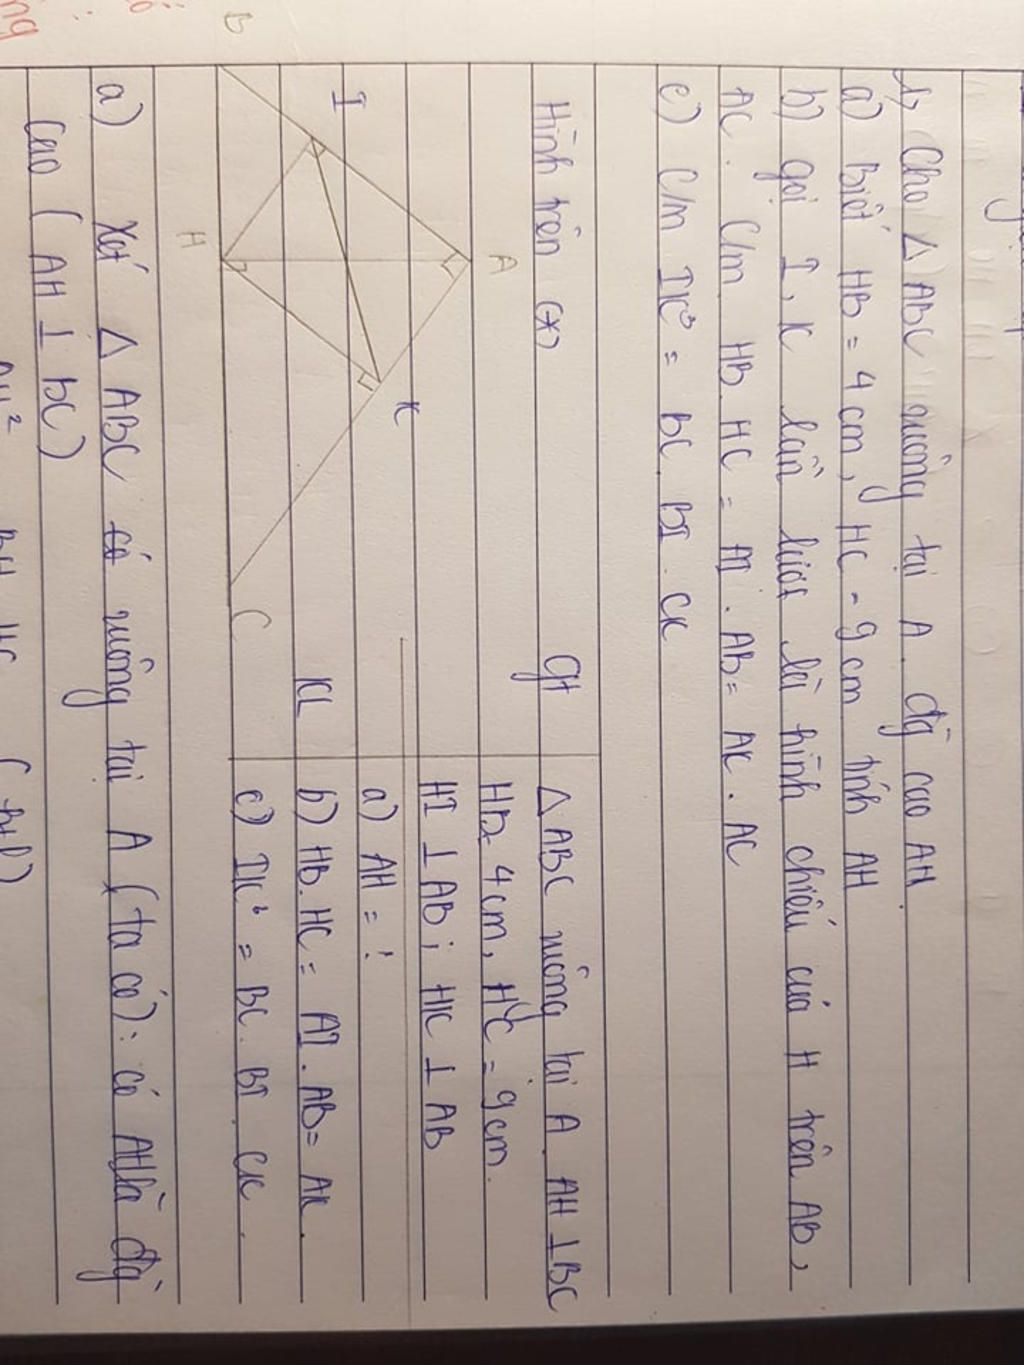 1, Cho △ ABC vuông tại A. đg cao AH.
a) Biết HB = 4 cm, HC = 9 cm tính AH
b) gọi I, K lần lượt là hình chiếu của H trên AB,
AC. C/m HB. HC = AI . AB = AK . AC
c) C/m IK³ = BC. BI . CK
Hình trên (*)
A
I
K
B
H
C
Gt △ ABC vuông tại A. AH ⊥ BC
HB = 4 cm, HC = 9 cm.
HI ⊥ AB; HK ⊥ AB
KL a) AH = ?
b) HB. HC = AI. AB = AK.
c) IK³ = BC. BI. CK.
a) Xét △ ABC có vuông tại A (ta có): có AH là đg
cao ( AH ⊥ BC)
AH² BH HC ( htl)